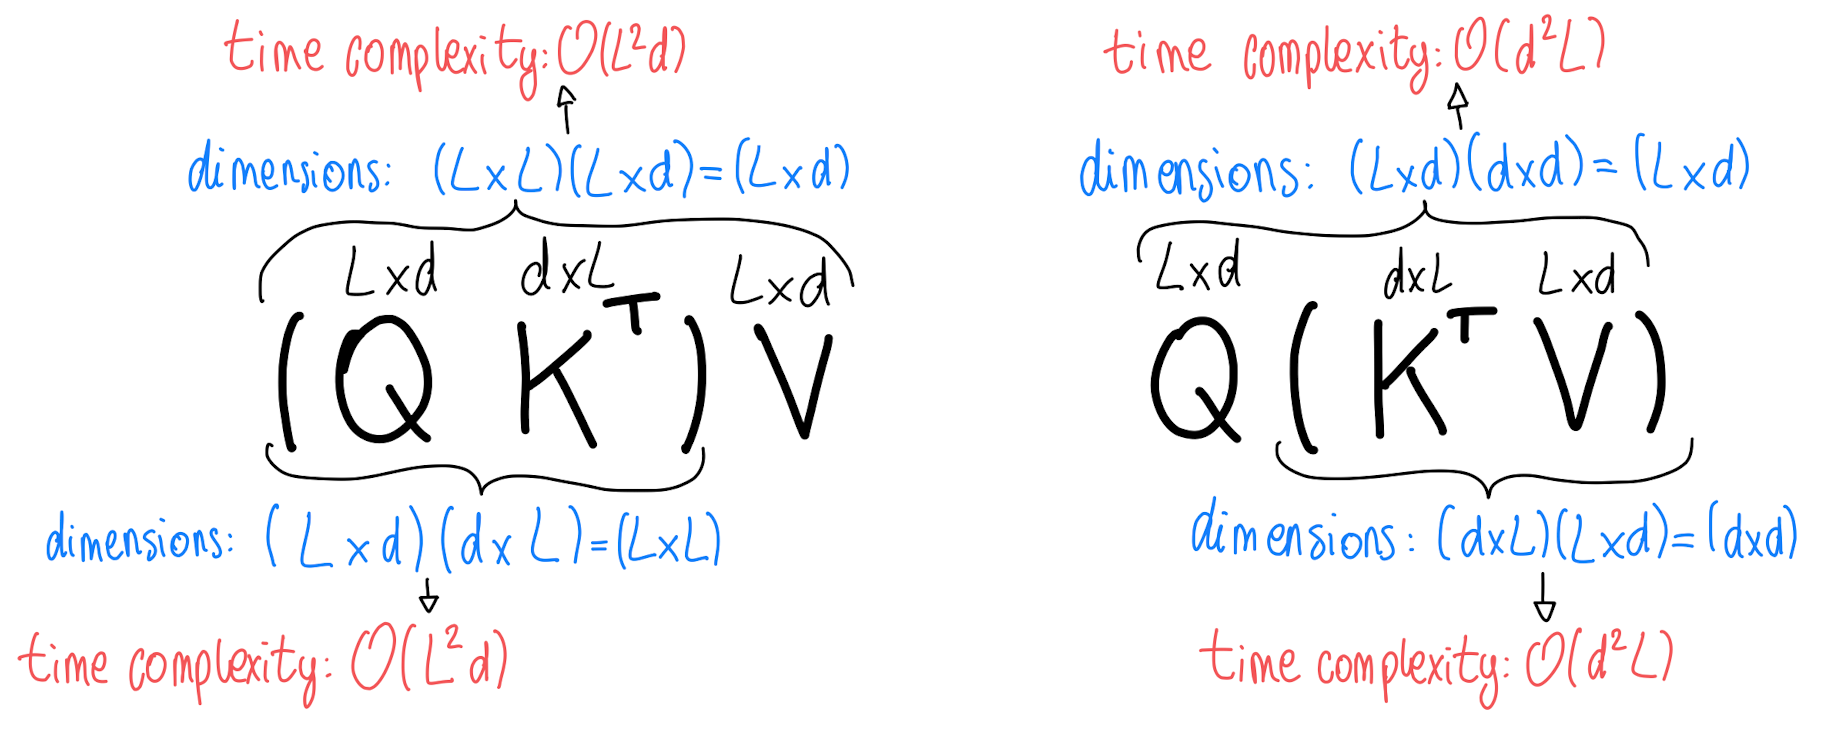 time complexity: O(L²d)
dimensions: (L×L)(L×d)=(L×d)
L×d d×L L×d
(Q Kᵀ)V
dimensions: (L×d)(d×L)=(L×L)
time complexity: O(L²d)
time complexity: O(d²L)
dimensions: (L×d)(d×d)=(L×d)
L×d d×L L×d
Q(Kᵀ V)
dimensions: (d×L)(L×d)=(d×d)
time complexity: O(d²L)